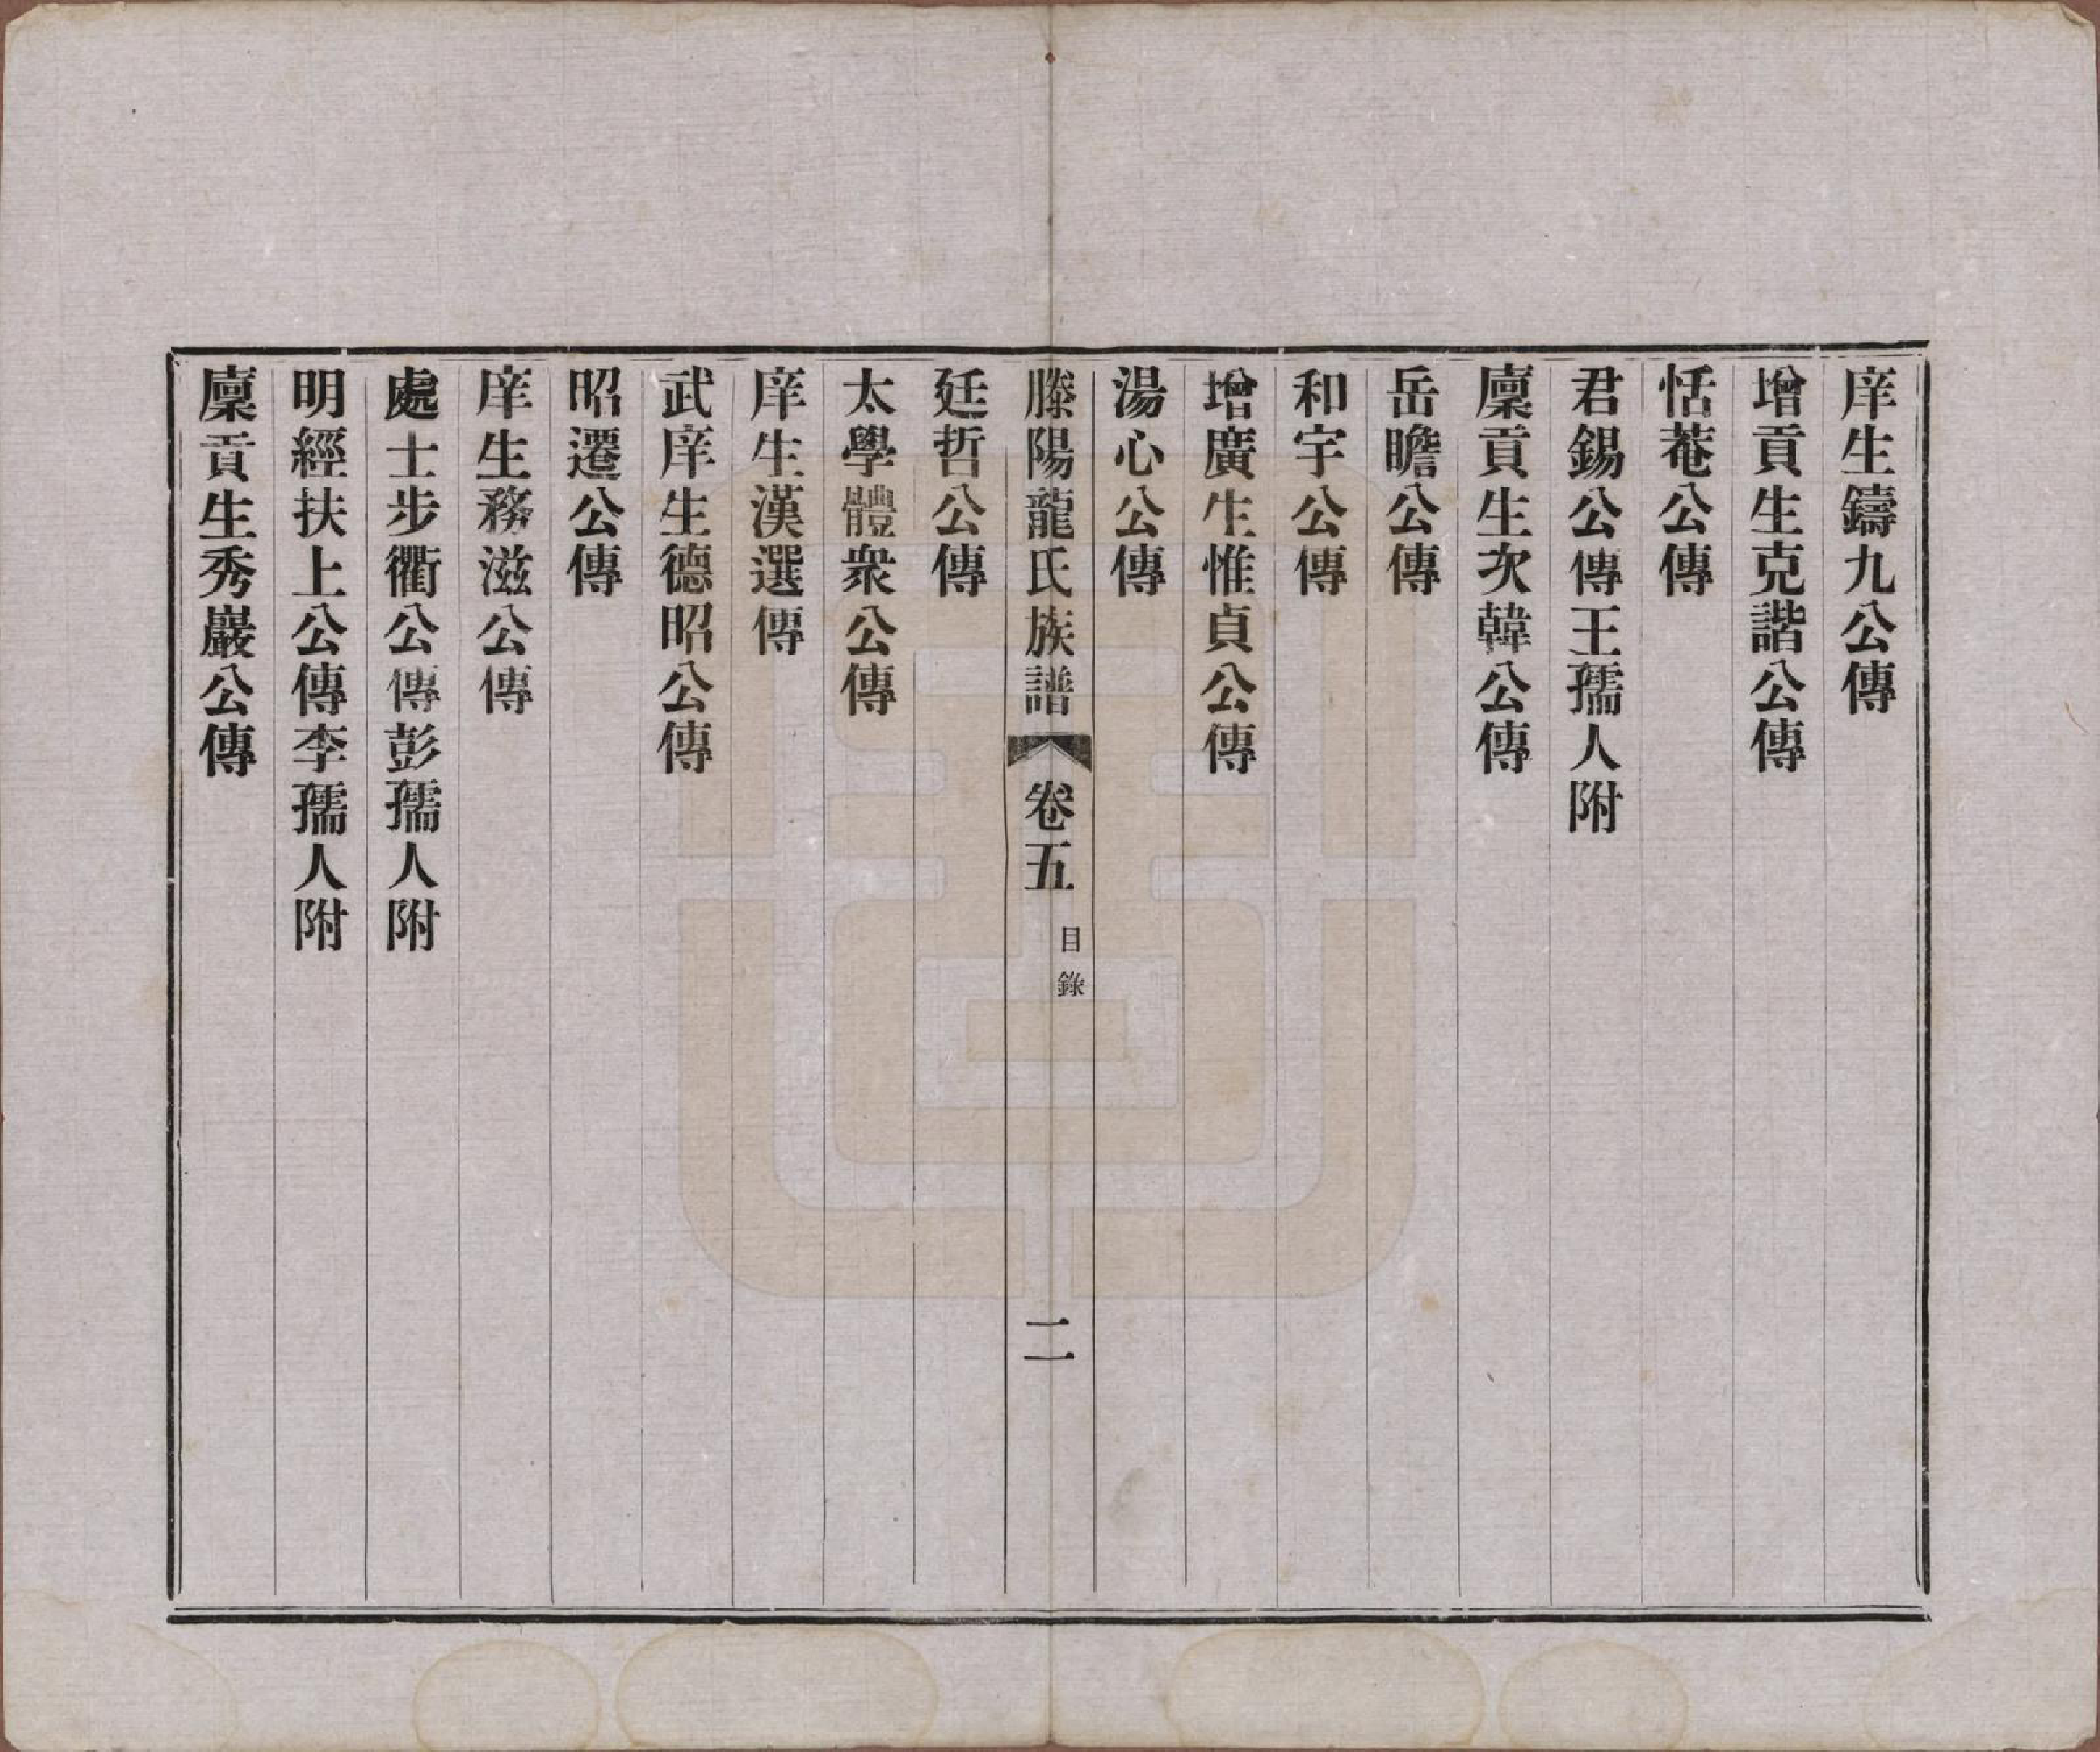 庠生鑄九公傳
增貢生克諧公傳
恬菴公傳
君錫公傳王孺人附
廩貢生次韓公傳
岳瞻公傳
和宇公傳
增廣生惟貞公傳
湯心公傳
滕陽龍氏族譜 卷五 目錄 二
廷哲公傳
太學體衆公傳
庠生漢選傳
武庠生德昭公傳
昭遷公傳
庠生務滋公傳
處士步衢公傳彭孺人附
明經扶上公傳李孺人附
廩貢生秀巖公傳